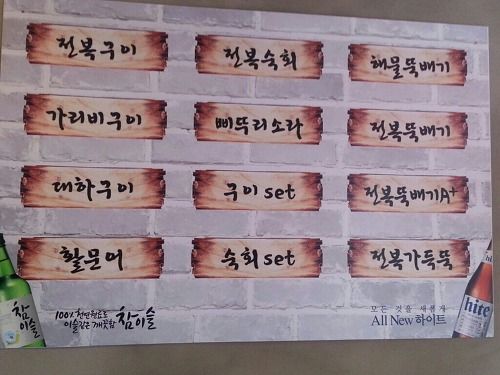 전복구이
전복숙회
해물뚝배기
가리비구이
삐뚜리소라
전복뚝배기
대하구이
구이 set
전복뚝배기A+
활문어
숙회 set
전복가득뚝
참이슬
100% 천연원료로
이슬같은 깨끗함 참이슬
모든 것을 새롭게
All New 하이트
hite